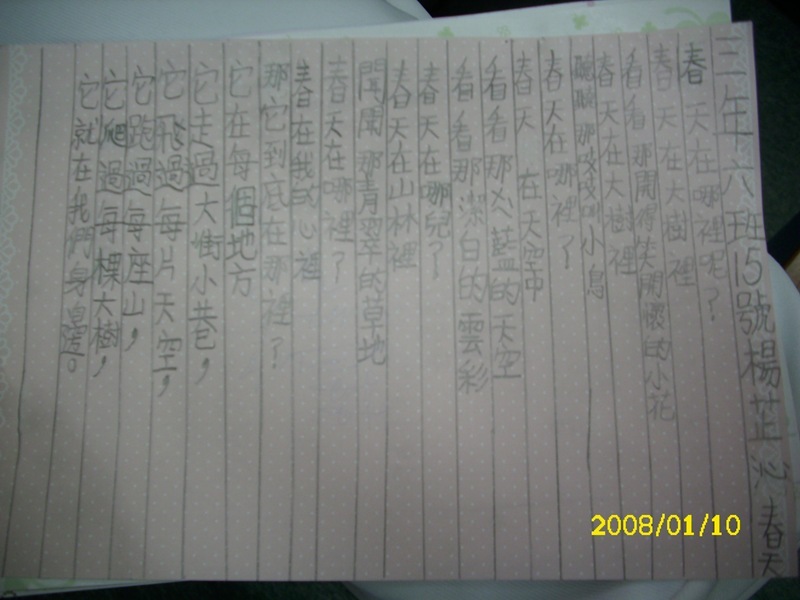 三年六班15號楊芷沁 春天
春天在哪裡呢？
春天在大樹裡
看看那開得失開懷的小花
春天在大樹裡
聽聽那吱吱叫小鳥
春天在哪裡？
春天 在天空中
看看那藍的天空
看看那潔白的雲彩
春天在哪兒？
春天在山林裡
聞聞那青翠的草地
春天在哪裡？
春在我的心裡
那它到底在那裡？
它在每個地方
它走過大街小巷，
它飛過每片天空，
它跑過每座山，
它爬過每棵大樹，
它就在我們身邊。
2008/01/10